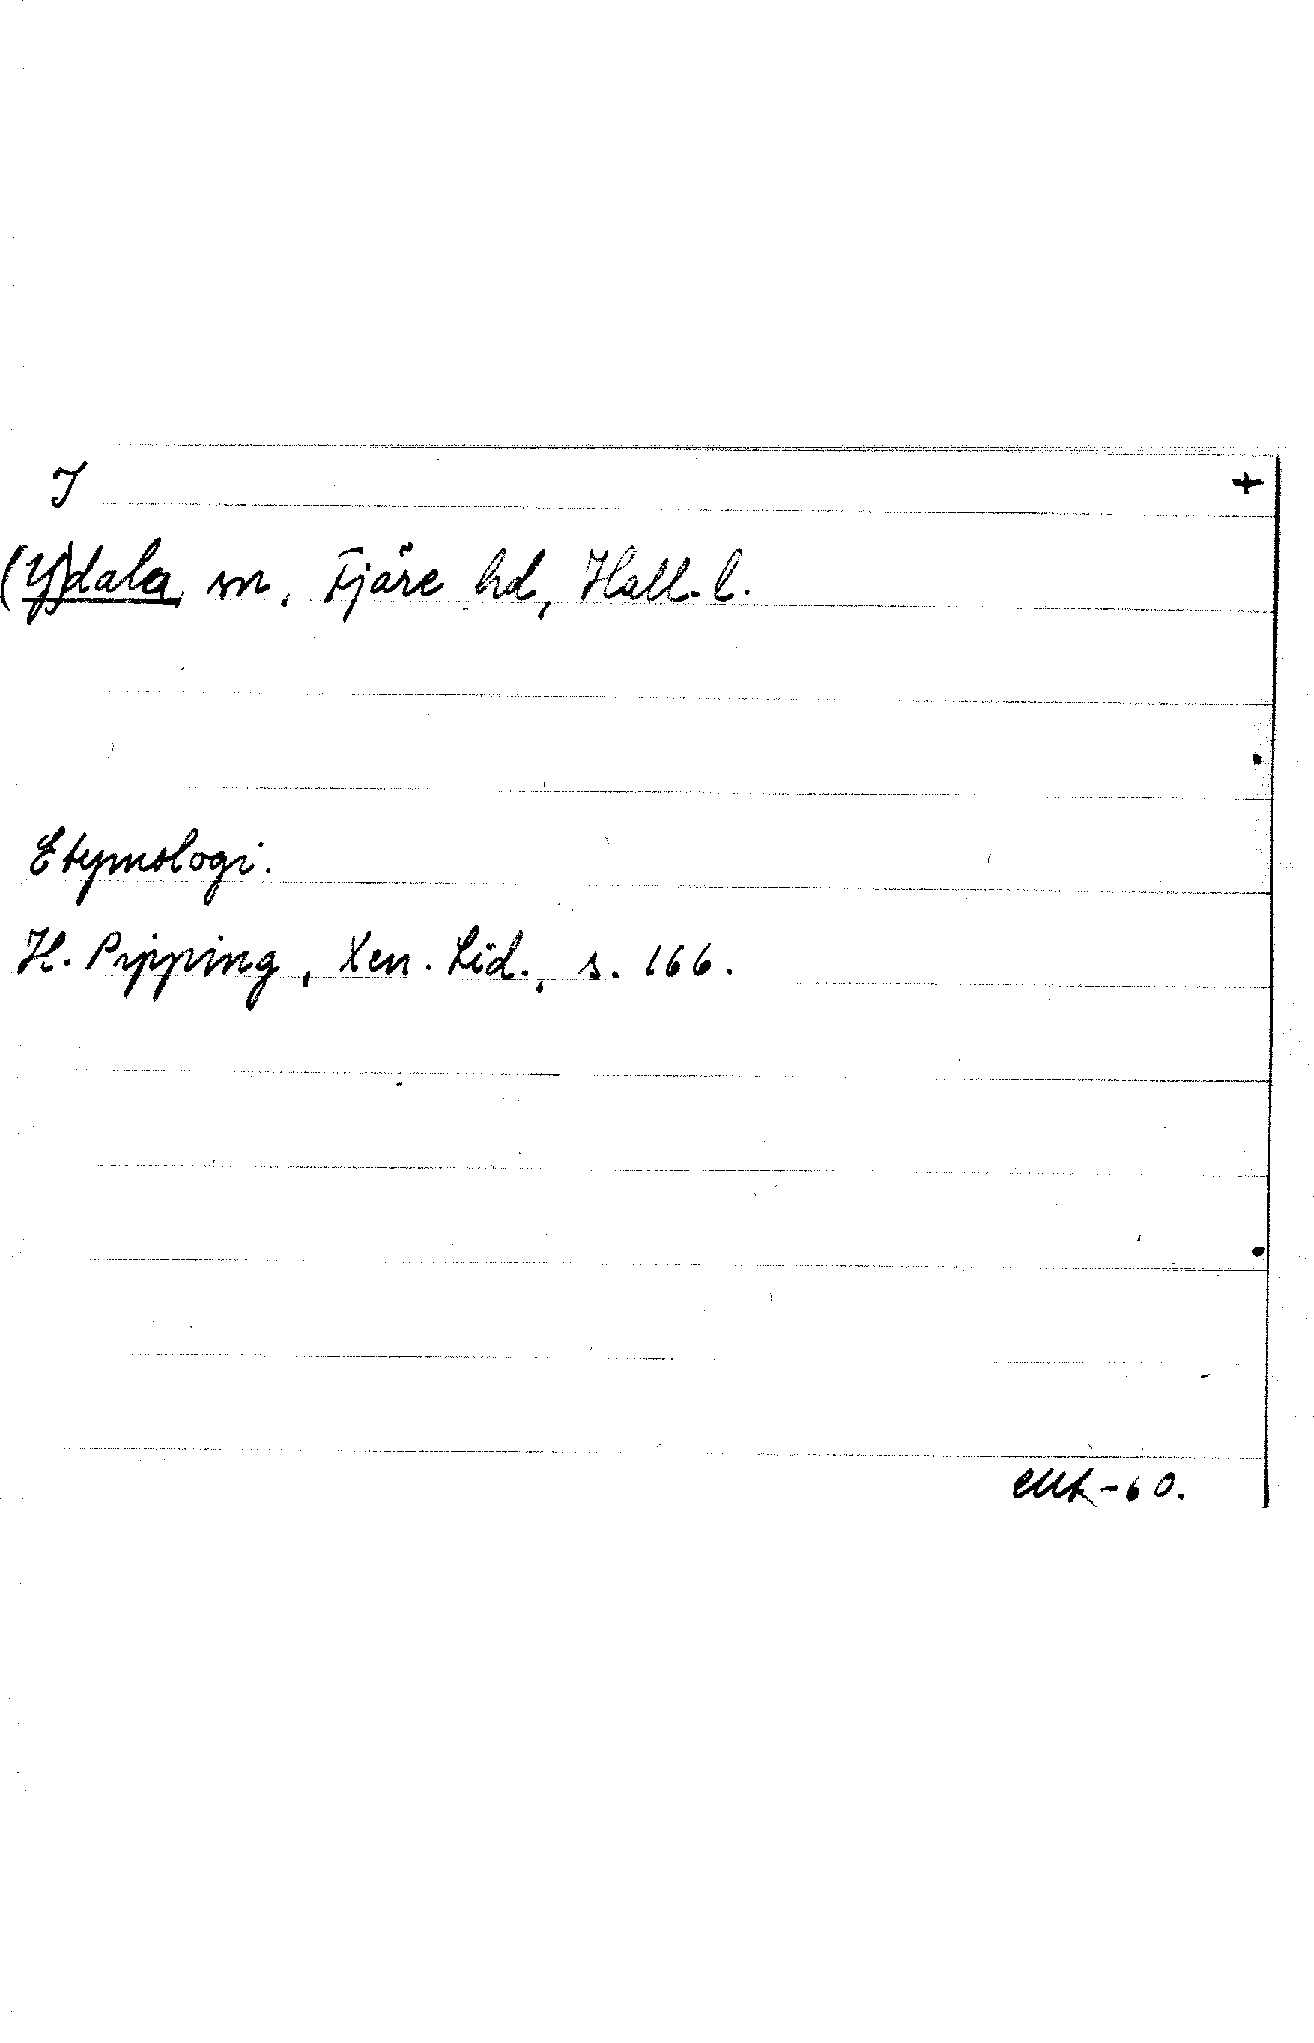 I +
(Y)dala sn, Fjäre hd, Hall. l.
Etymologi.
H. Pipping, Xen. Lid., s. 166.
-60.